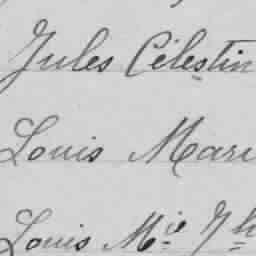 Jules Célestin
Louis Mari
Louis Mie Jh